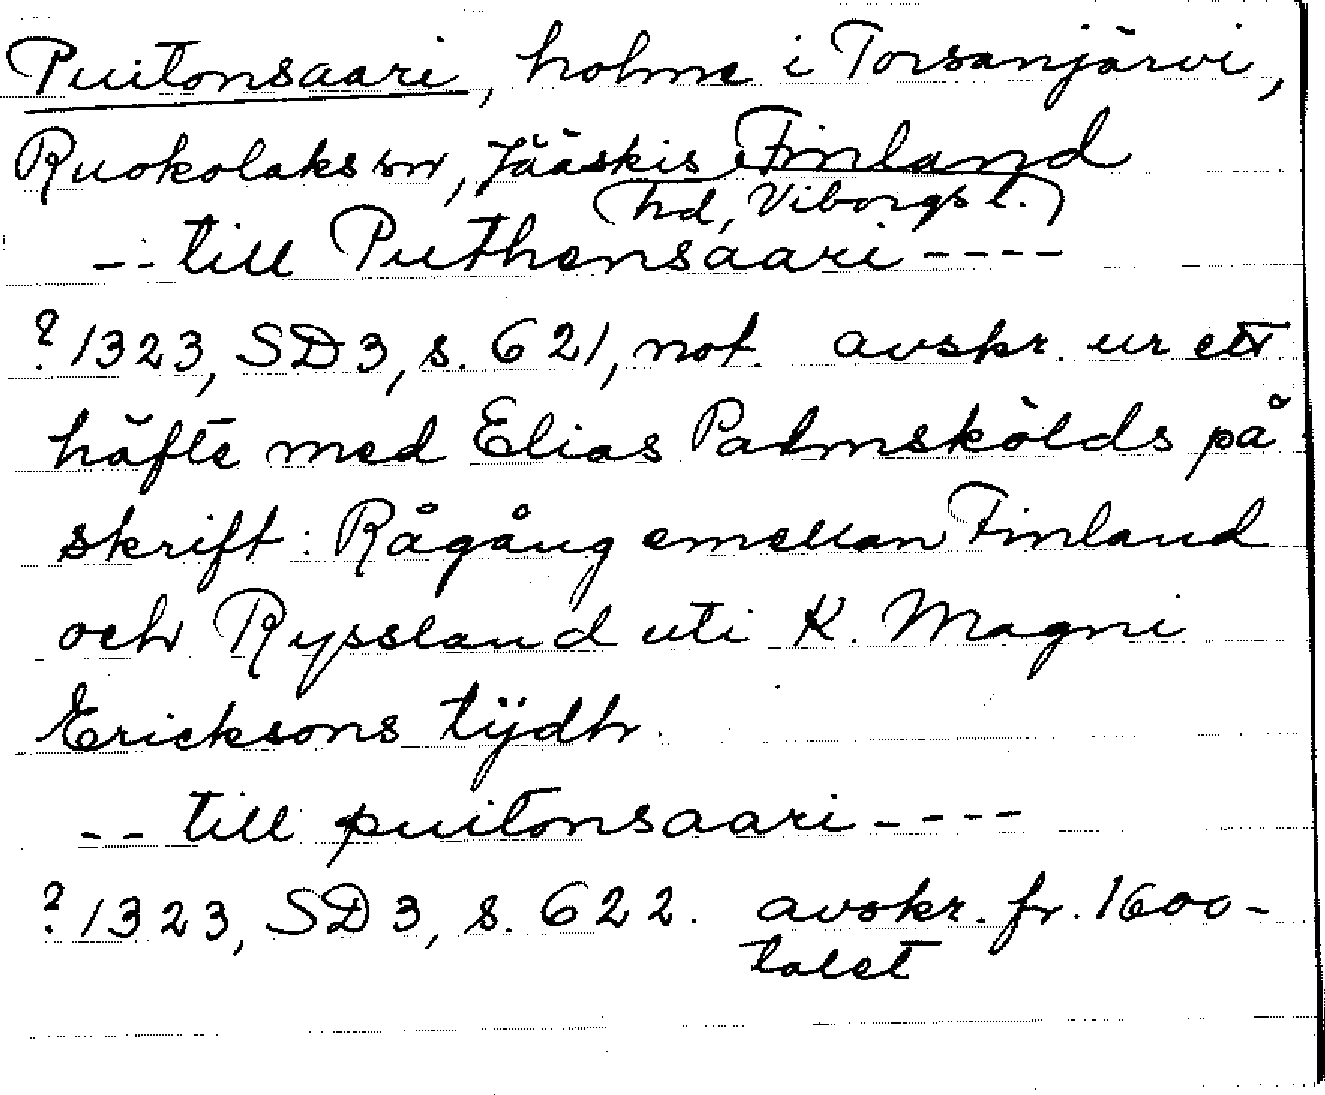 Puitonsaari, holme i Torsanjärvi,
Ruokolaks sn, Jääskis Finland
hd, Viborgs l.)
-- till Puthensaari ----
? 1323, SD 3, s. 621, not. avskr. ur ett
häfte med Elias Palmskölds på
skrift: Rågång emellan Finland
och Ryssland uti K. Magni
Ericksons tijdh.
-- till puitonsaari ----
? 1323, SD 3, s. 622. avskr. fr. 1600-
talet